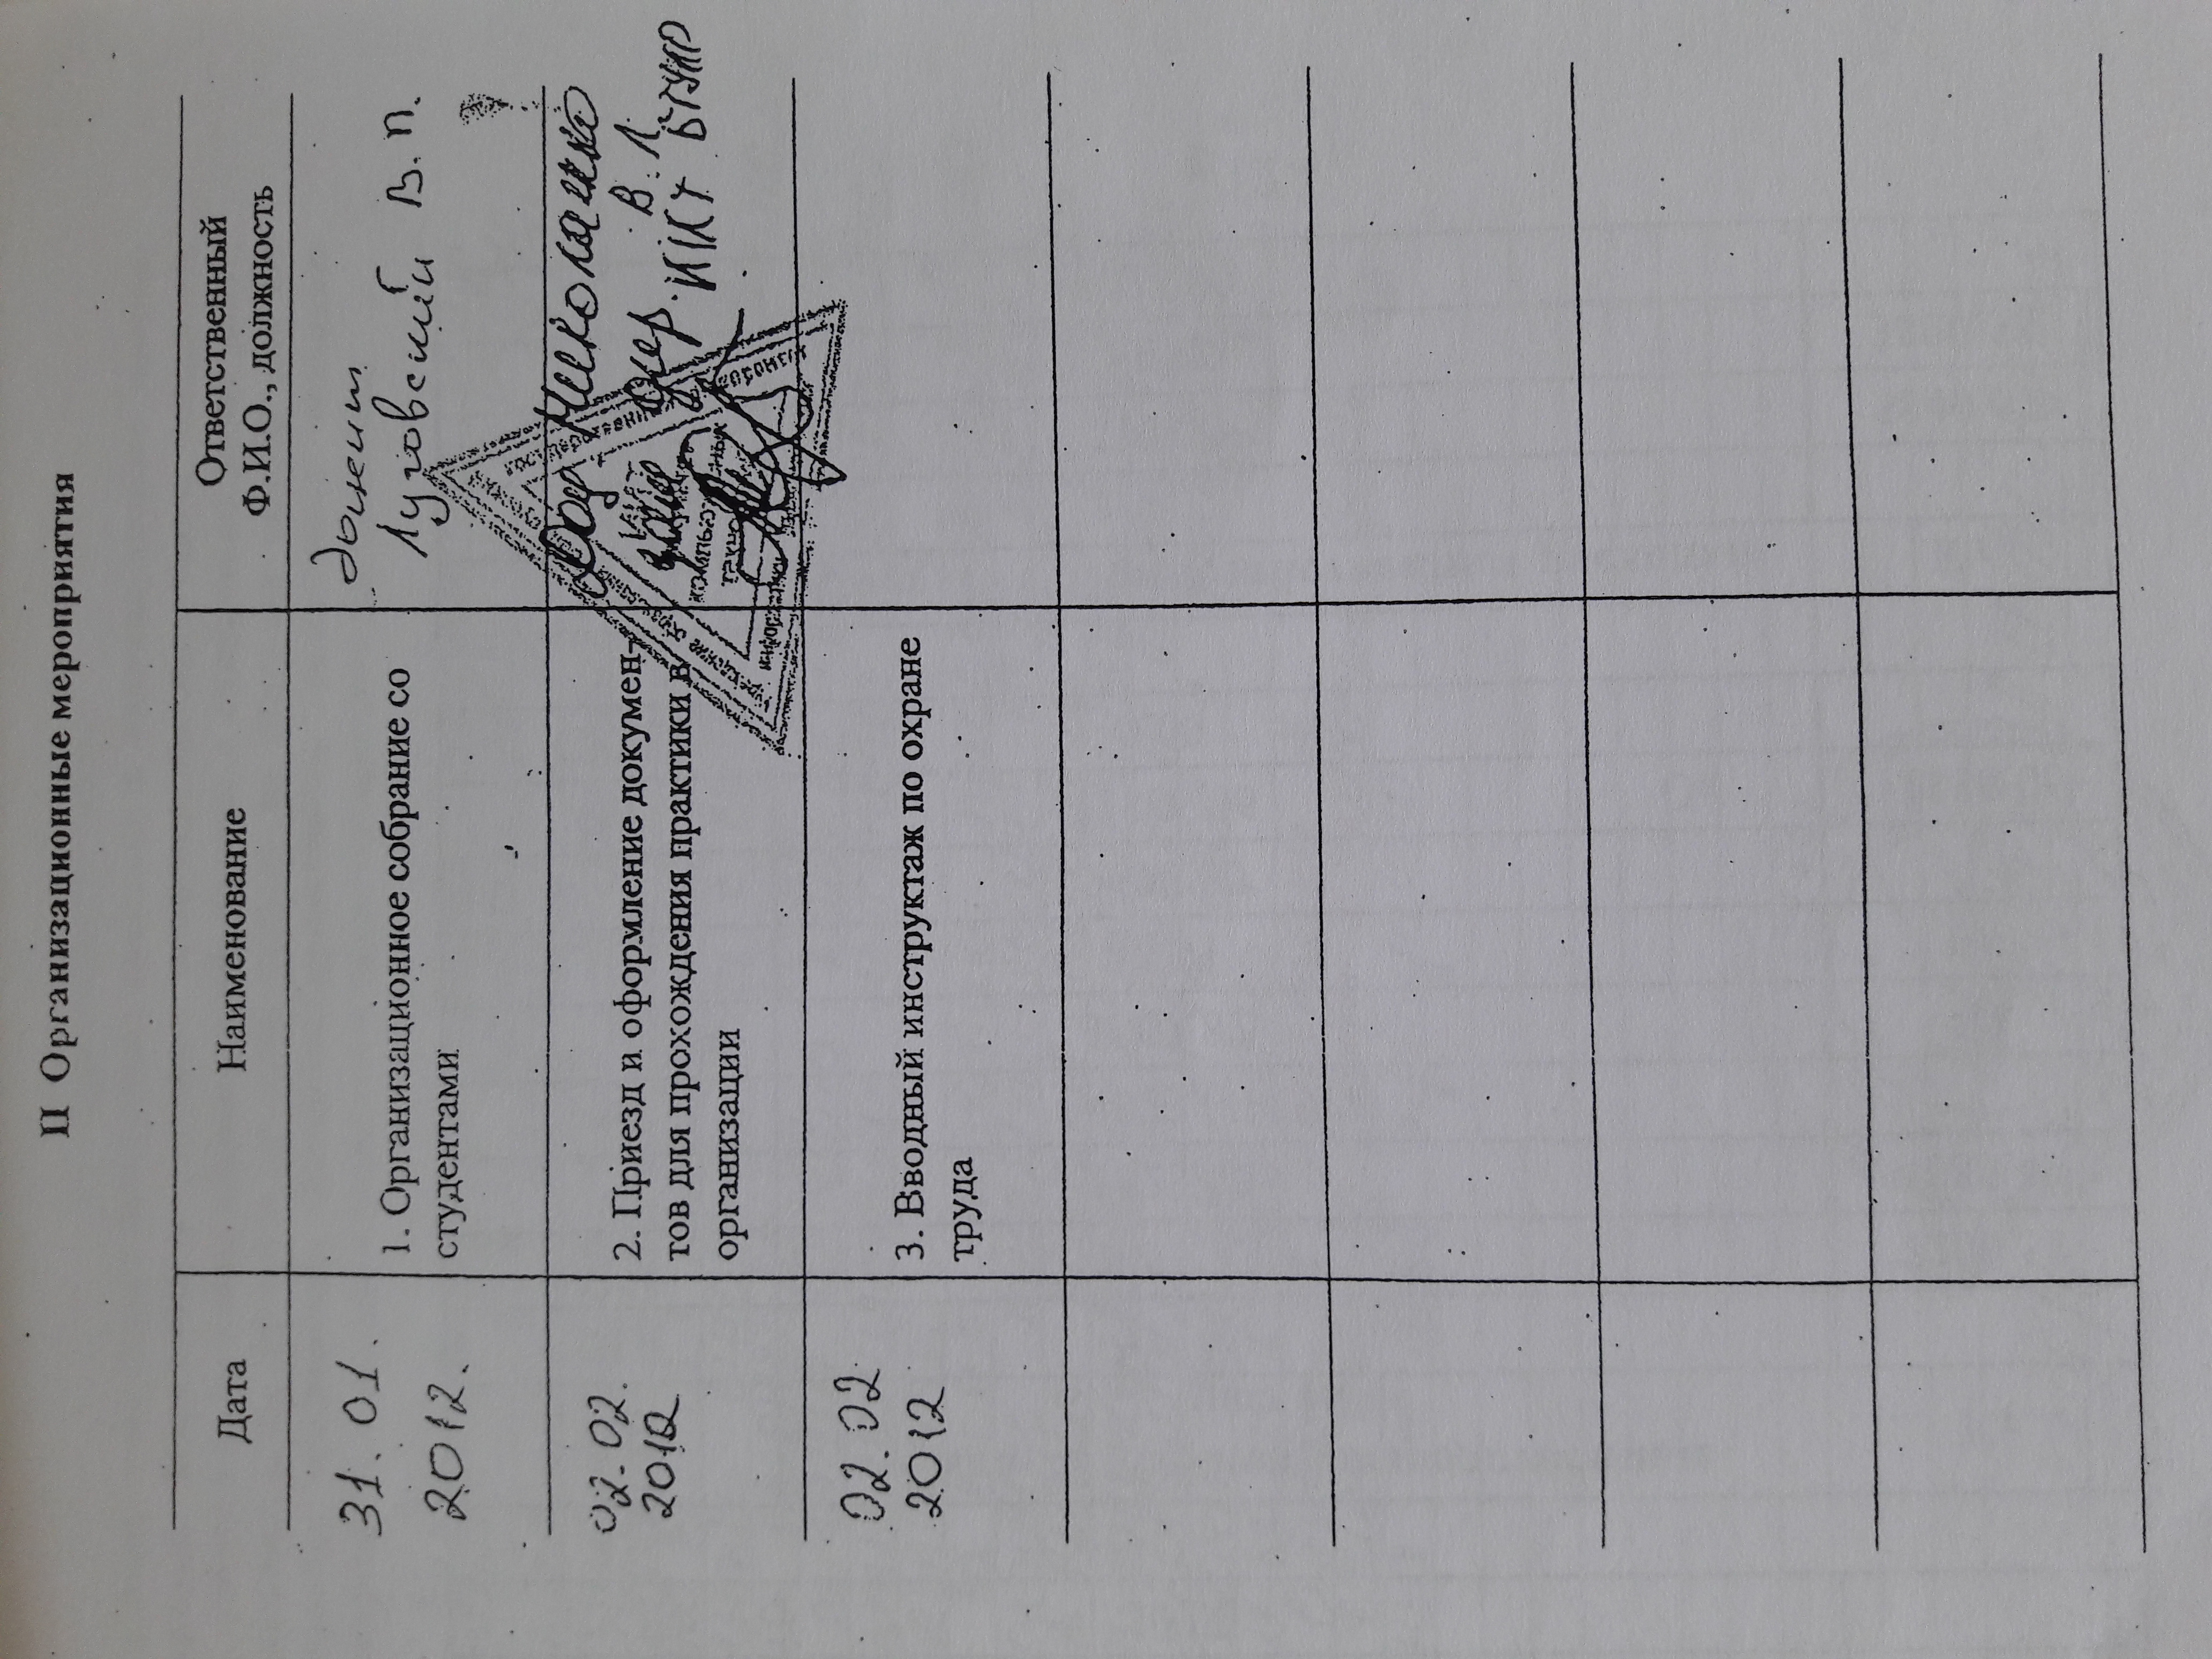 II Организационные мероприятия
Дата
Наименование
Ответственный
Ф.И.О., должность
31.01.
2012.
1. Организационное собрание со
студентами
доцент
Луговский В.П.
02.02.
2012
2. Приезд и оформление докумен-
тов для прохождения практики в
организации
Доц. Николаенко
В.Л.
зам дир. ИИКТ БГУИР
учреждение
информатики
02.02
2012
3. Вводный инструктаж по охране
труда